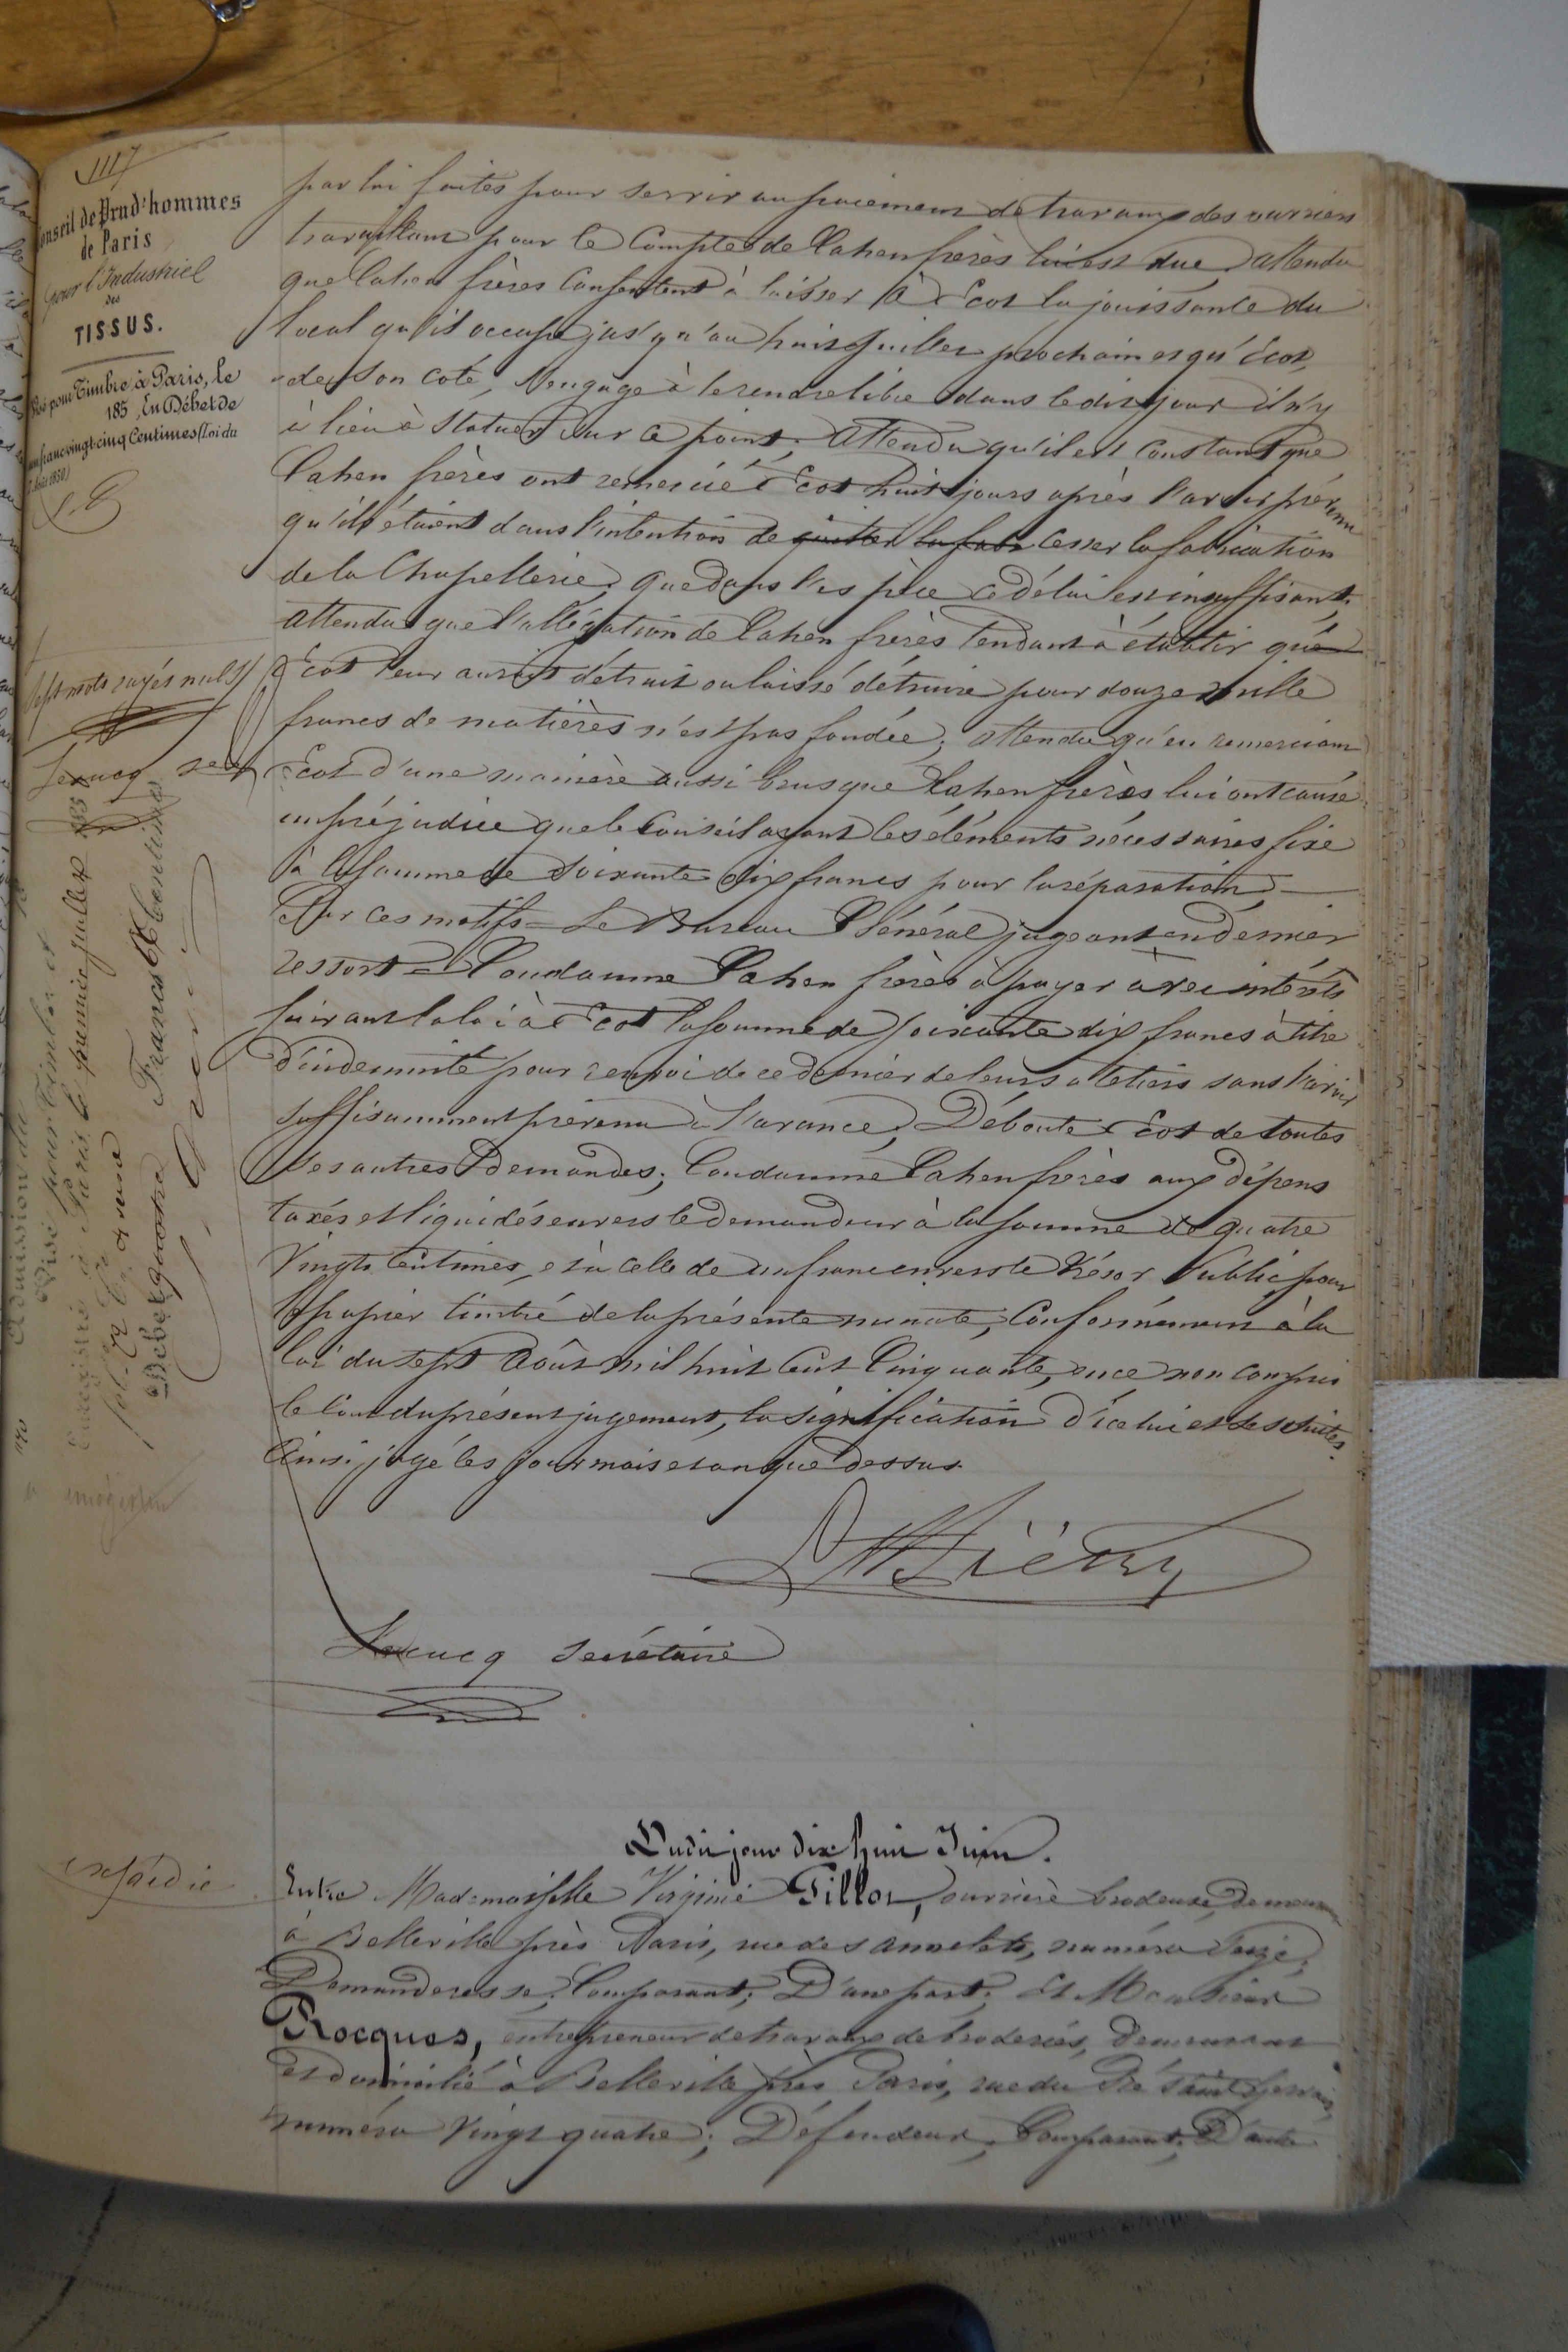 1117
Conseil de Prud'hommes
de Paris
pour l'Industrie
des
TISSUS.
Visé pour Timbre à Paris, le
185 , En Débet de
un franc vingt cinq Centimes (Loi du
par lui faites pour servir au paiement de travaux des ouvriers
travaillant pour le Compte de Cahen frères lui est due; attendu
que Cahen frères Consentent à laisser à Ecot la jouissance du
local qu'il occupe jusqu'au huit Juillet prochain et qu'Ecot,
de son coté, s'engage à le rendre libre dans le dit jour il n'y
à lieu à Statuer sur ce point; Attendu qu'il est Constant que
Cahen frères ont remercié Ecot huit jours après l'avoir prévenu
qu'ils étaient dans l'intention de quitter la fabr cesser la fabrication
de la Chapellerie; que dans l'espèce ce délai est insuffisant;
attendu que l'allégation de Cahen frères tendant à établir que
Ecot leur aurait détruit ou laissé détruire pour douze mille
francs de matières n'est pas fondée; attendu qu'en remerciant
Ecot d'une manière aussi brusque Cahen frères lui ont causé
un préjudice que le Conseil ayant les éléments nécessaires fixe
à la somme de soixante dix francs pour la réparation;
Par ces motifs = Le Bureau Général jugeant en dernier
ressort = Condamne Cahen frères à payer avec intérêts
suivant la loi à Ecot la somme de soixante dix francs à titre
d'indemnité pour renvoi de ce dernier de leurs ateliers sans l'avoir
suffisamment prévenu à l'avance; Déboute Ecot de toutes
ses autres demandes; Condamne Cahen frères aux dépens
taxés et liquidés envers le demandeur à la somme de quatre
Vingts Centimes, et à celle de un franc envers le Trésor Public, pour
le papier timbré de la présente minute, Conformément à la
loi du sept Août mil huit Cent Cinquante, en ce non compris
le coût du présent jugement, la signification d'icelui et ses suites.
Ainsi jugé les jour mois et an que dessus.
Sept mots rayés nuls
Lecucq
Visé pour Timbre et
Enregistré à Paris le premier Juillet 185
Débet quatre Francs Centimes
Lecucq secrétaire
Dudit jour dix huit Juin.
expédié
Entre Mademoiselle Virginie Fillot, ouvrière brodeuse, demeurant
à Belleville près Paris, rue des Annelets, numéro Seize;
Demanderesse; Comparant; D'une part; Et Monsieur
Rocques, entrepreneur de travaux de broderies, demeurant
et domicilié à Belleville près Paris, rue du Pré Saint Gervais,
numéro Vingt quatre; Défendeur; Comparant; D'autre